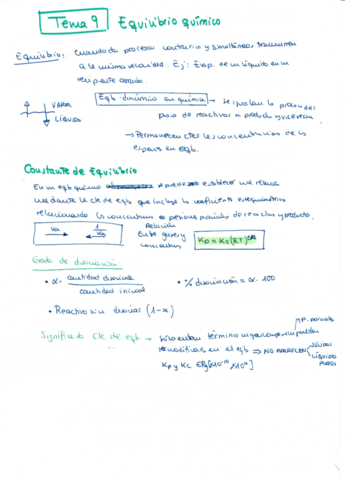 Tema 9 Equilibrio químico
Equilibrio: Cuando dos procesos contrarios y simultáneos transcurren
a la misma velocidad. Ej: Evap. de un líquido en un
recipiente cerrado.
VAPOR
LÍQUIDO
Eqb dinámico en química → Se igualan los procesos del
paso de reactivos a productos y viceversa.
→ Permanecen ctes las concentraciones de las
especies en Eqb.
Constante de Equilibrio
En un eqb químico se puede establecer una relación
mediante la cte de eqb que incluye los coeficientes estequiométricos
relacionando las concentraciones o presiones parciales de reactivos y productos.
Relación
Entre gases y
concentraciones
Kp = Kc(RT)
Grado de disociación:
• α = cantidad disociada
cantidad inicial
• % disociación = α · 100
• Reactivo sin disociar (1-α)
Significado cte de eqb →
en el eqb ⇒ NO APARECEN
SÓLIDOS
LÍQUIDOS
PUROS
Kp y Kc